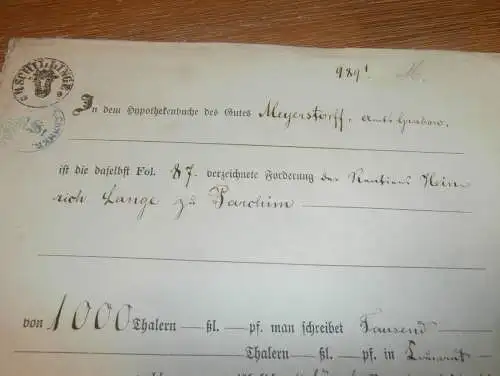 SCHILLINGE
989¹.
In dem Hypothekenbuche des Gutes Meyerstorff, Amts Grabow,
ist die daselbst Fol. 87. verzeichnete Forderung des Rentiers Hein
rich Lange zu Parchim
von 1000 Thalern — ßl. — pf. man schreibet Tausend
Thalern — ßl. — pf. in